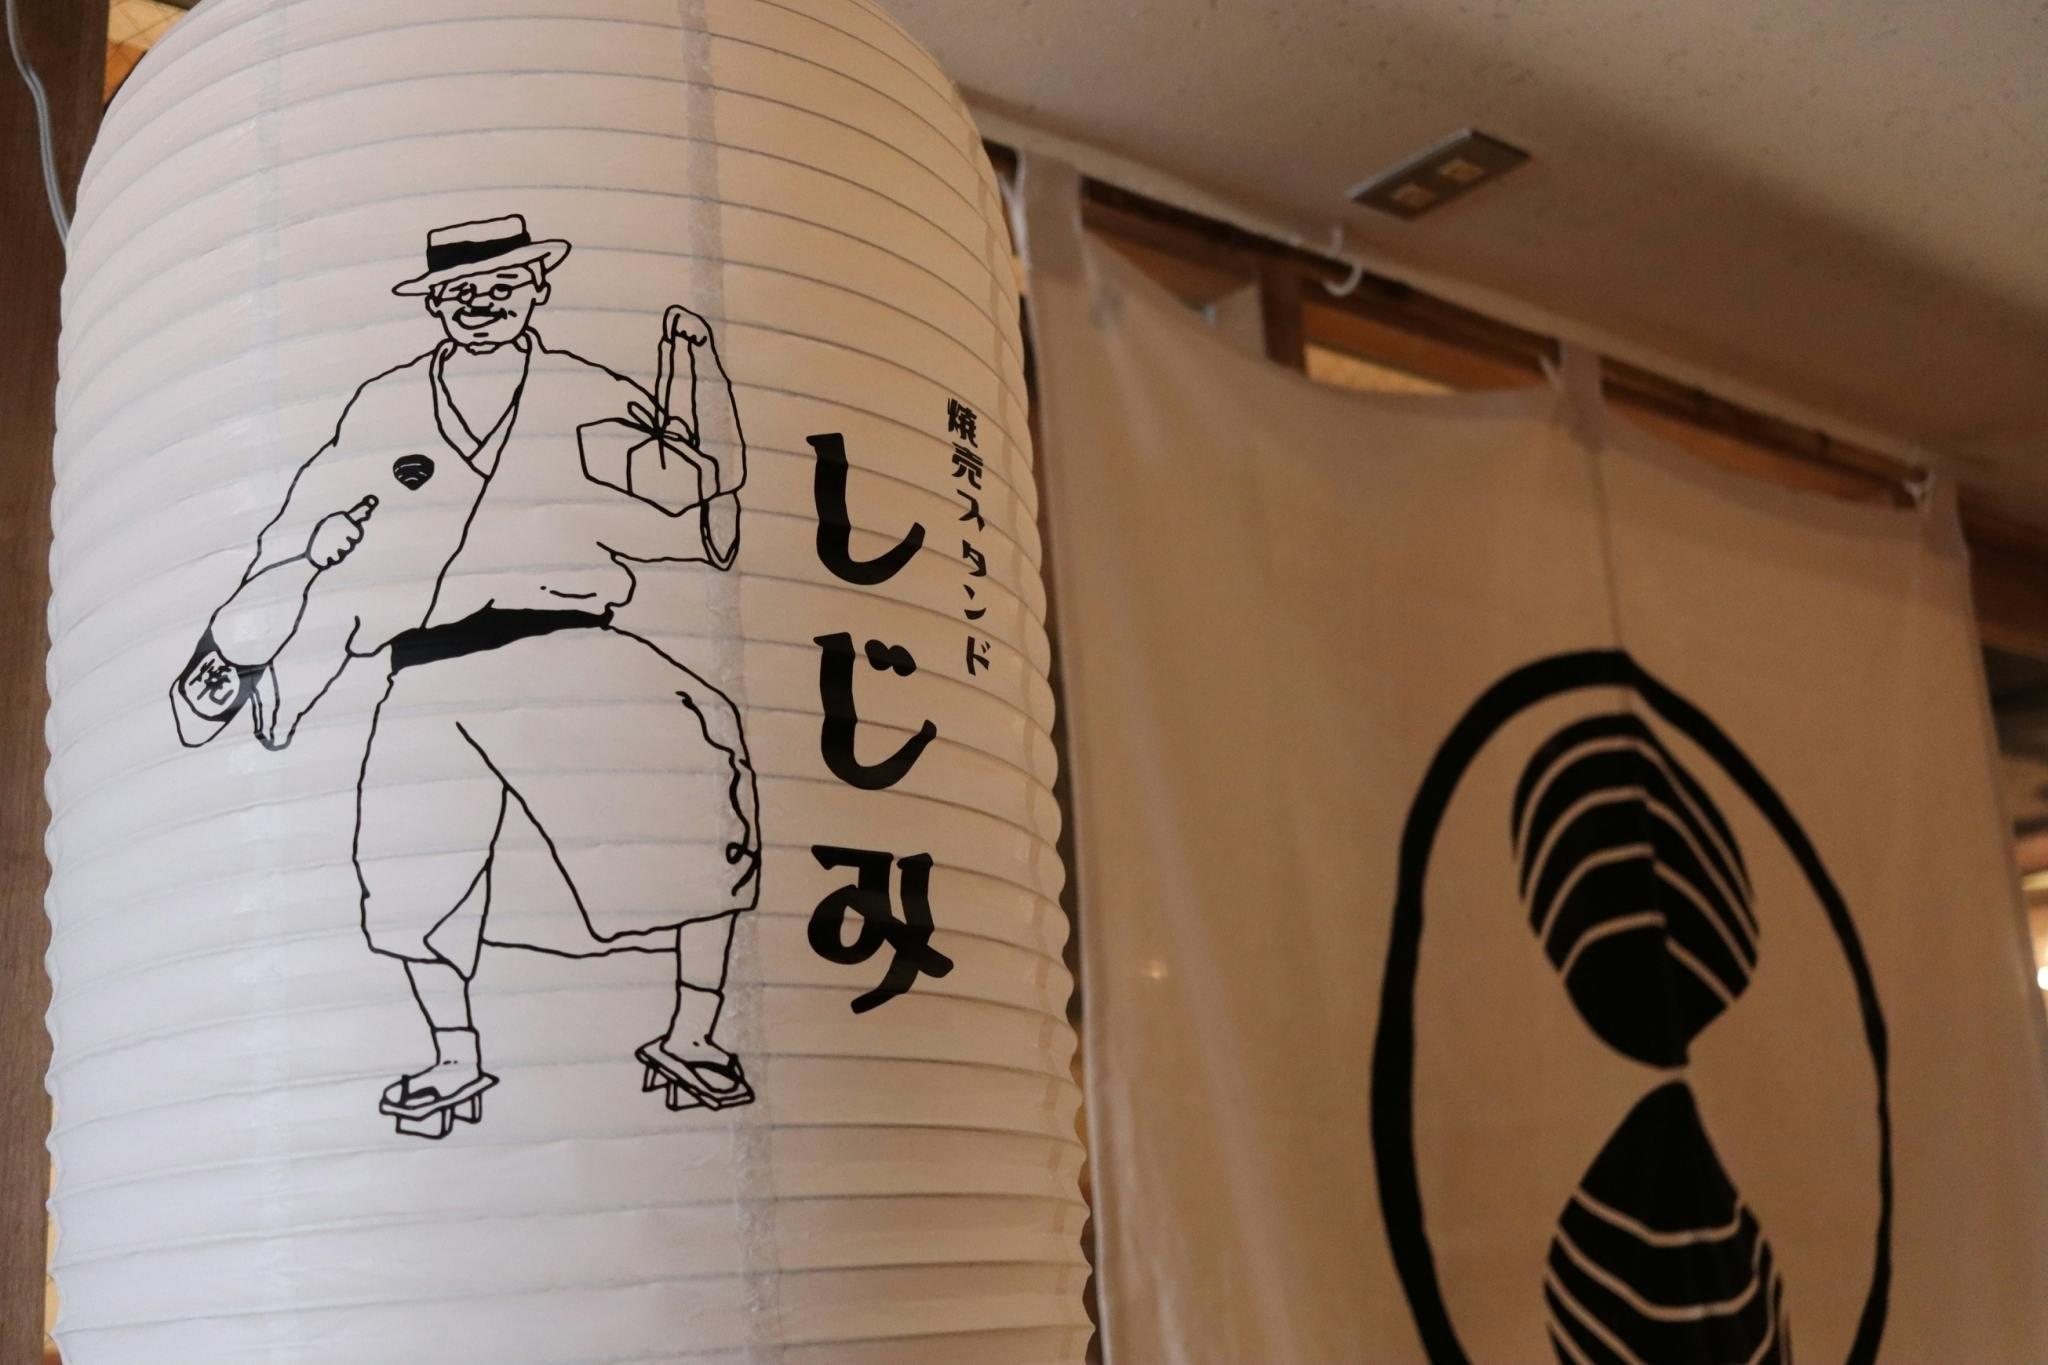 焼売スタンド
しじみ
焼